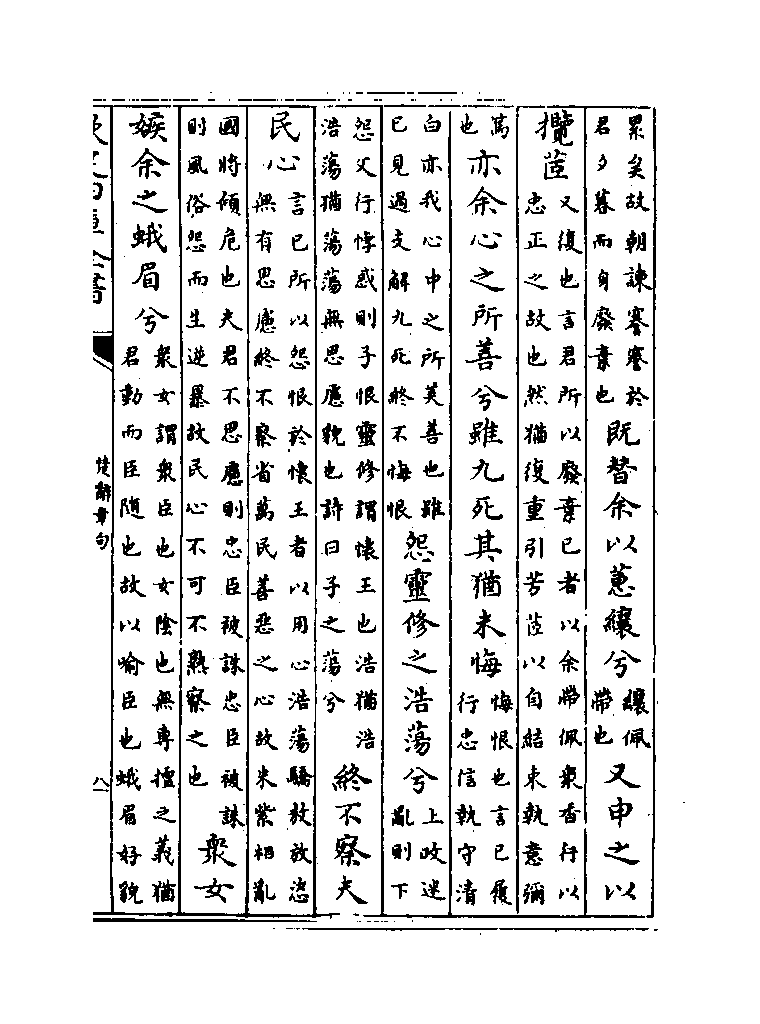 累矣故朝諫謇謇於君夕暮而身廢棄也既替余以蕙纕兮纕佩帶也又申之以
攬茝又復也言君所以廢棄己者以余帶佩衆香行以忠正之故也然猶復重引芳茝以自結束執意彌
篤也亦余心之所善兮雖九死其猶未悔悔恨也言己履行忠信執守清
白亦我心中之所美善也雖己見過支解九死終不悔恨怨靈修之浩蕩兮上政迷亂則下
怨父行悖惑則子恨靈修謂懷王也浩猶浩浩蕩猶蕩蕩無思慮貌也詩曰子之蕩兮終不察夫
民心言己所以怨恨於懷王者以用心浩蕩驕敖放恣無有思慮終不察省萬民善惡之心故朱紫相亂
國將傾危也夫君不思慮則忠臣被誅忠臣被誅則風俗怨而生逆暴故民心不可不熟察之也衆女
嫉余之蛾眉兮衆女謂衆臣也女陰也無專擅之義猶君動而臣隨也故以喻臣也蛾眉好貌
楚辭章句
八